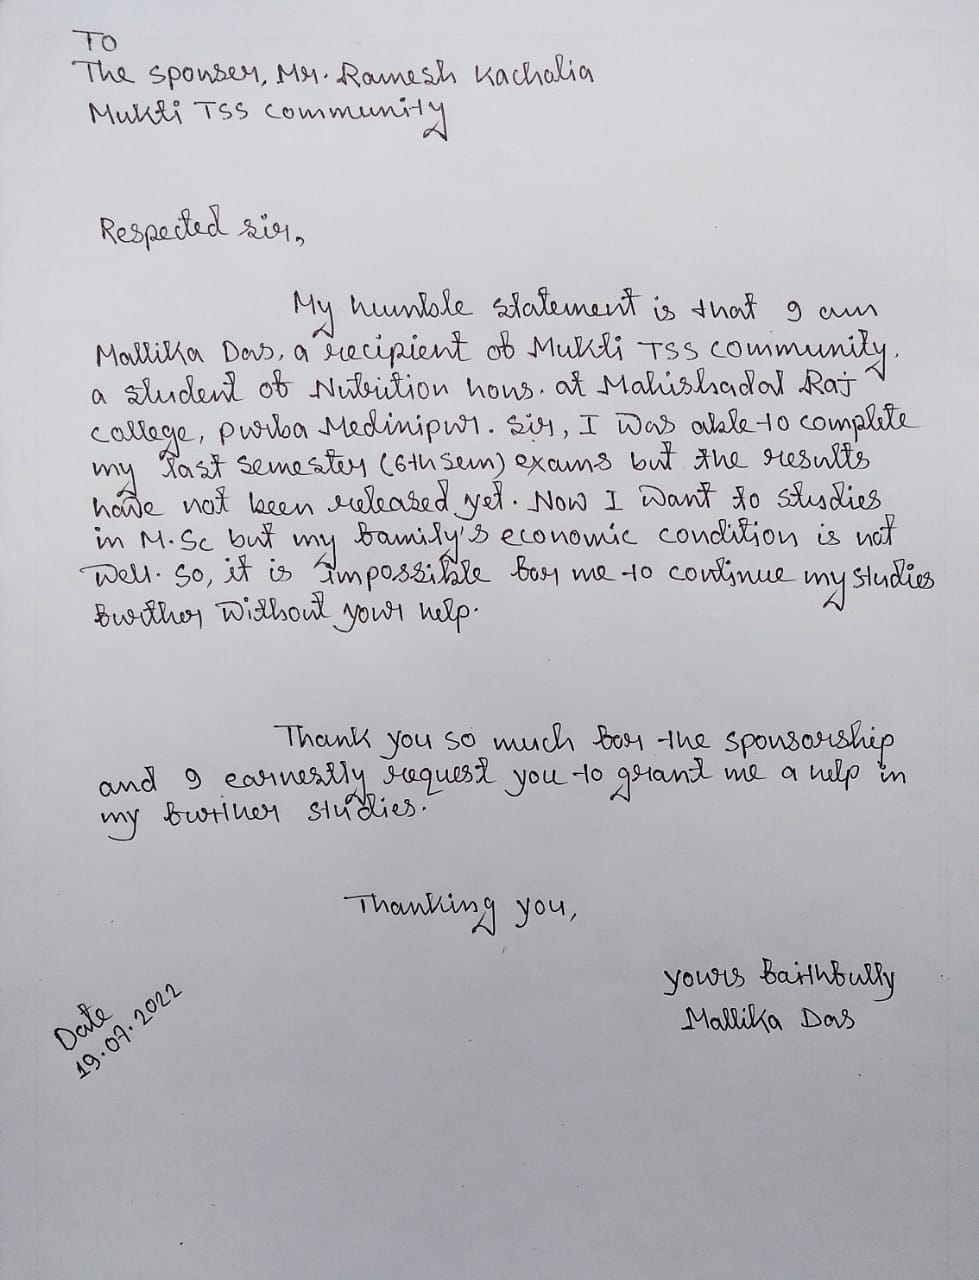 TO
The sponser, Mr. Ramesh Kachalia
Mukti TSS Community
Respected sir,
My humble statement is that I am
Mallika Das, a recipient of Mukti TSS community,
a student of Nutrition hons. at Mahishadal Raj
college, purba Medinipur. Sir, I was able to complete
my last semester (6th sem) exams but the results
have not been released yet. Now I want to studies
in M.Sc but my family's economic condition is not
well. So, it is impossible for me to continue my studies
further without your help.
Thank you so much for the sponsorship
and I earnestly request you to grant me a help in
my further studies.
Thanking you,
yours faithfully
Mallika Das
Date
19.07.2022